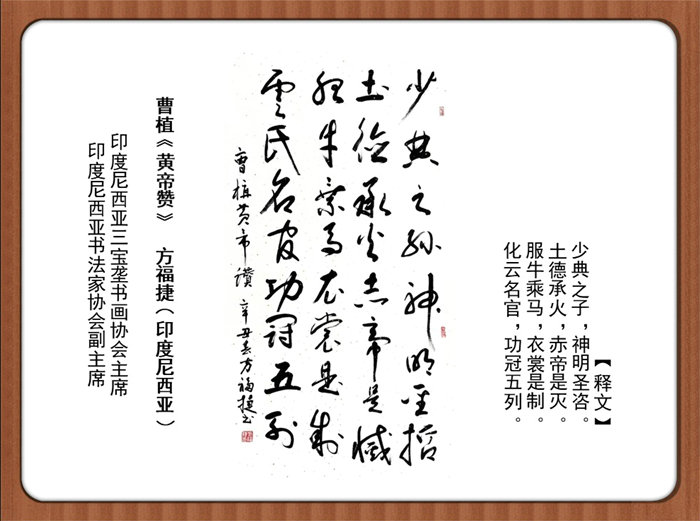 【释文】
少典之子，神明圣咨。
土德承火，赤帝是灭。
服牛乘马，衣裳是制。
化云名官，功冠五列。
少典之孙神明圣哲
土德承火赤帝是滅
服牛乘马衣裳是制
雲氏名官功冠五列
曹植黄帝讚 辛丑春方福捷书
曹植《黄帝赞》 方福捷（印度尼西亚）
印度尼西亚三宝垄书画协会主席
印度尼西亚书法家协会副主席